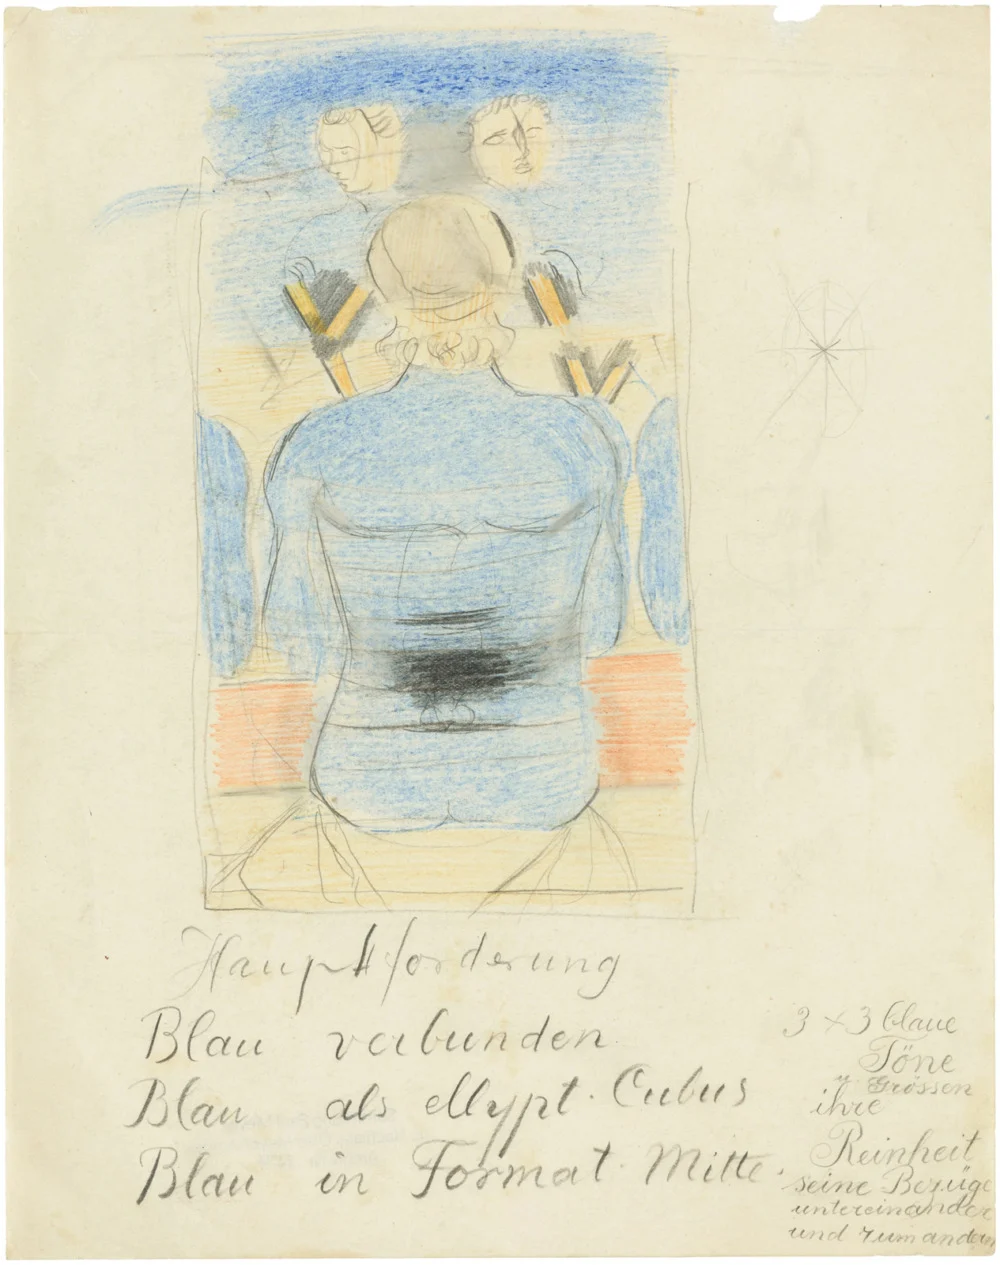 Hauptforderung
Blau verbunden
Blau als ellypt. Cubus
Blau in Format. Mitte.
3 x 3 blaue
Töne
u Grössen
ihre
Reinheit
seine Bezüge
untereinander
und zum andern